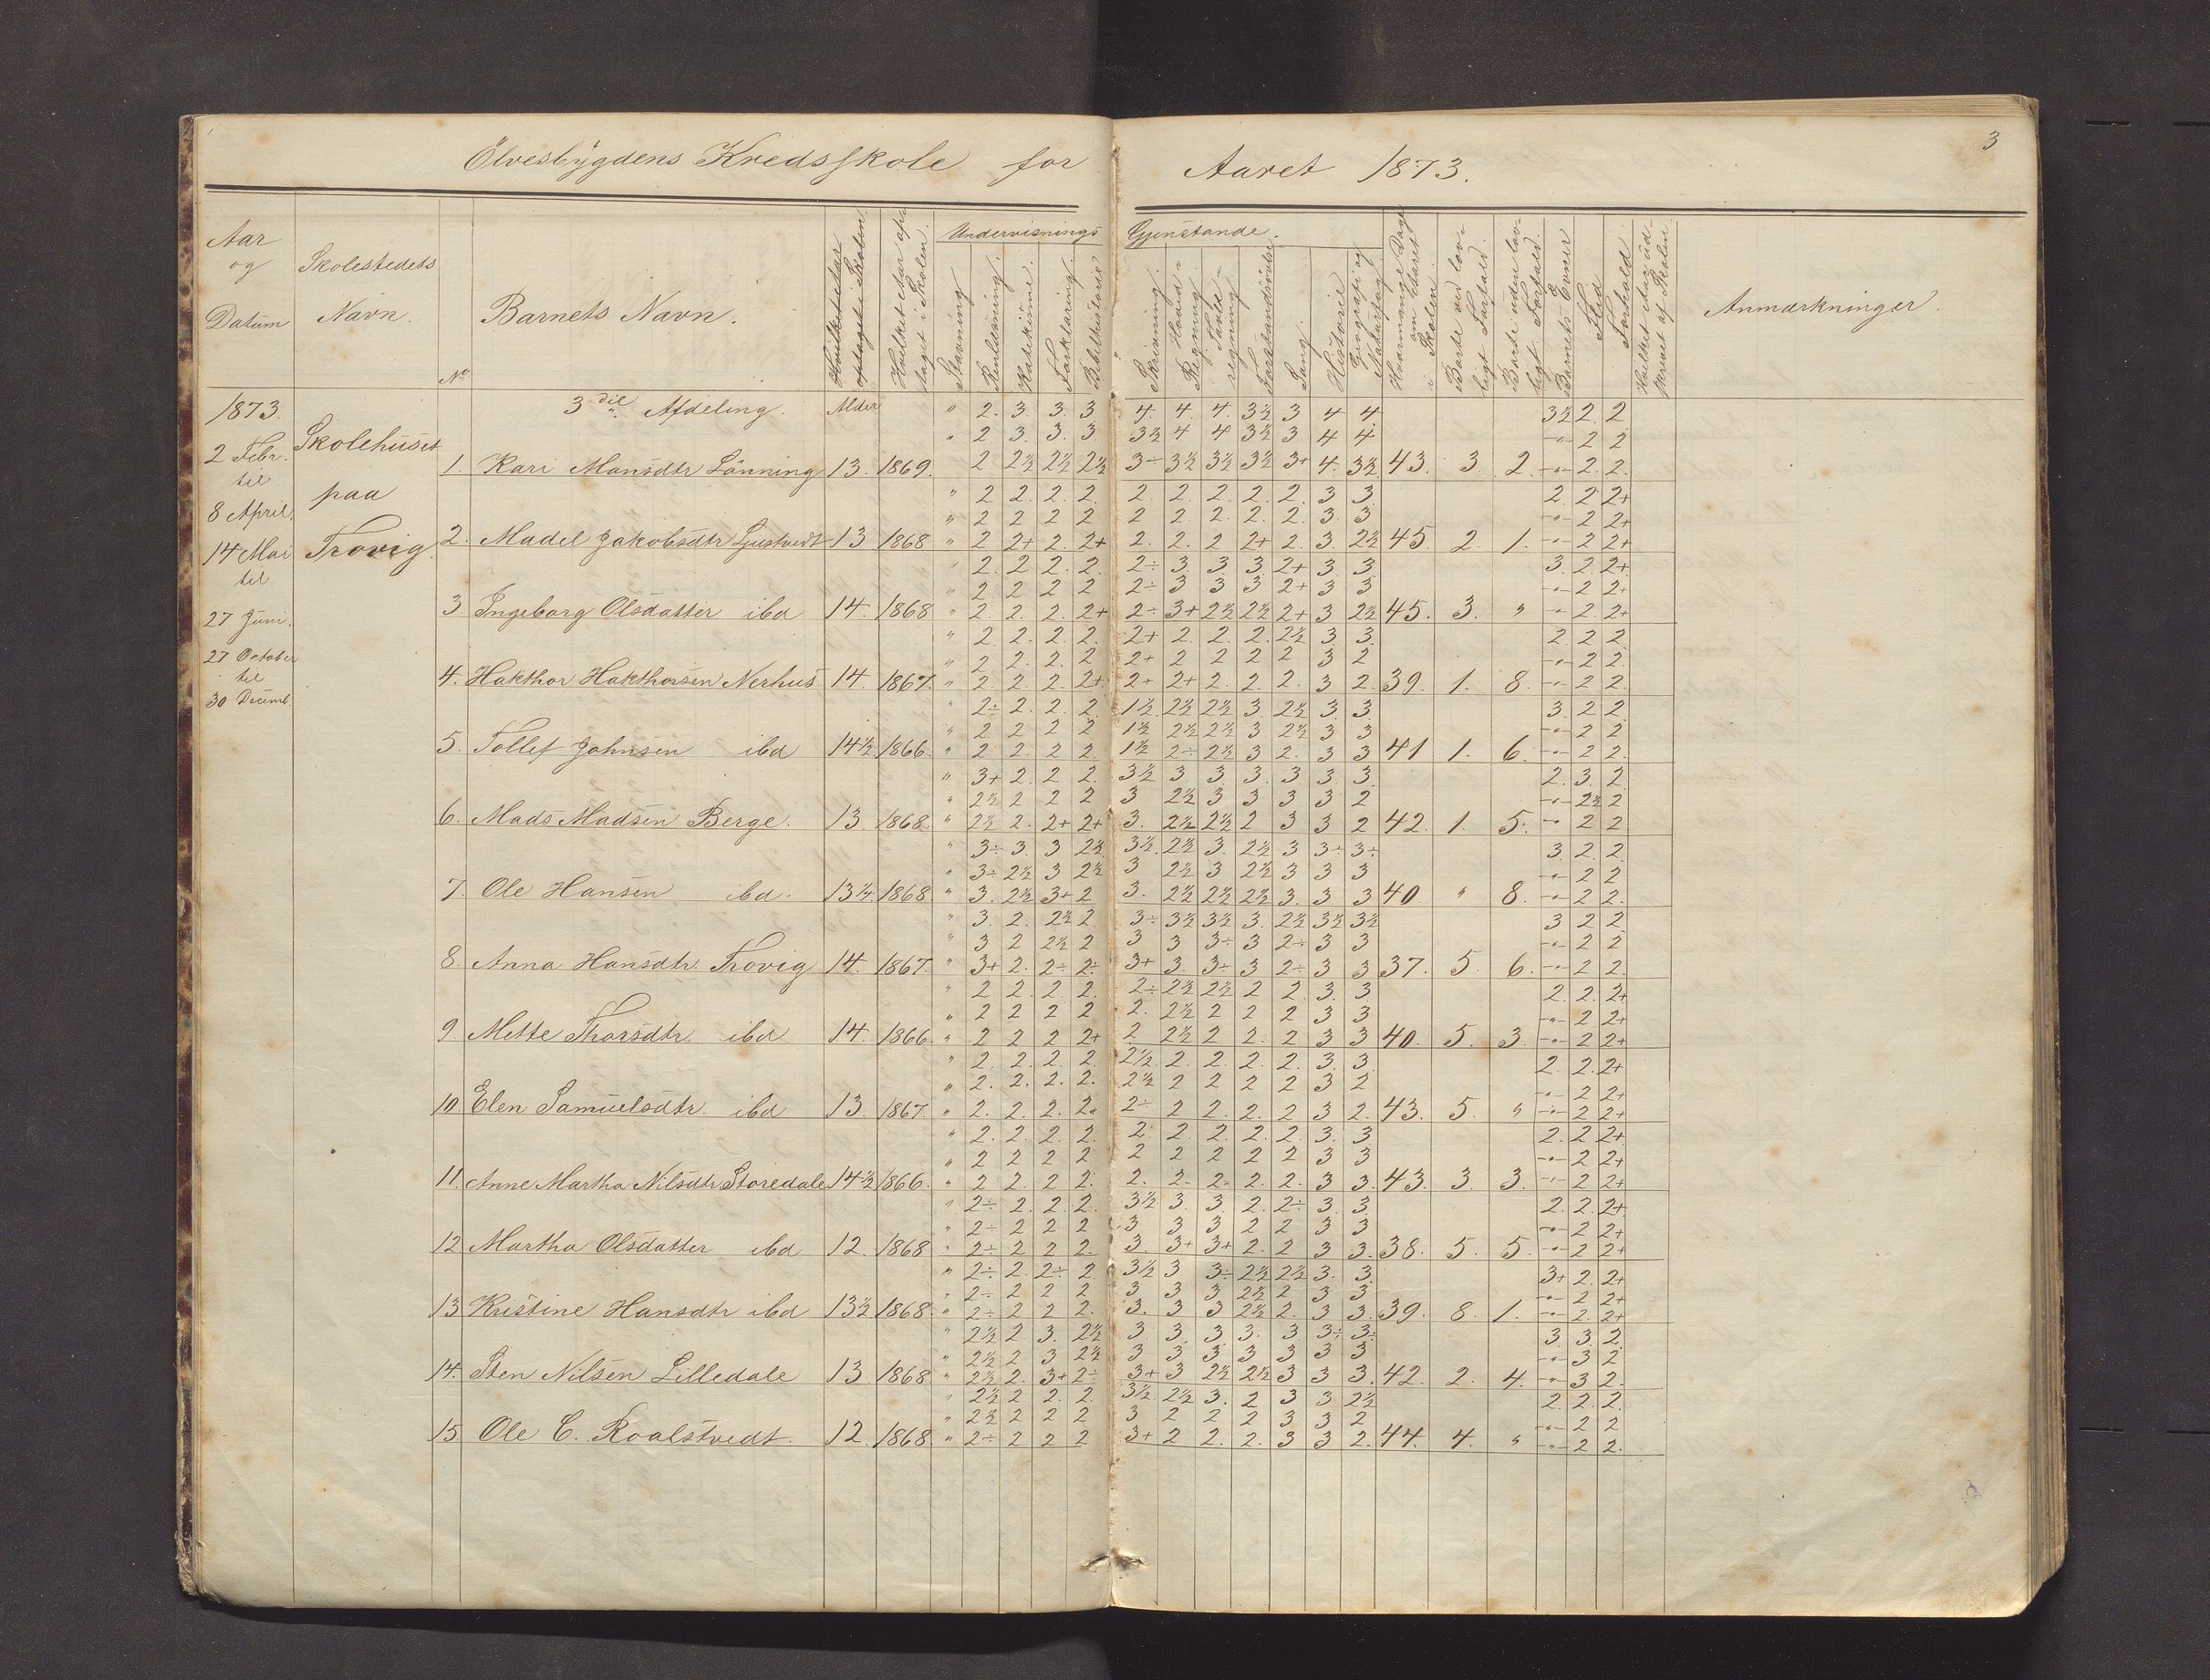 Elvesbÿgdens Kredsskole for Aaret 1873.
3
Aar og Datum
Skolestedets Navn.
No
Barnets Navn.
Undervisnings Gjenstande.
Stavning
Katekisme.
Forklaring.
Bibelhistorie
Skrivning.
Hoved-Regning.
Tavle-regning
Sang.
Historie
Barnets Evner
Flid
Forhold
Anmærkninger.
1873.
2 Febr. til 8 April.
14 Mai til 27 Juni.
27 October til 30 Decemb.
Skolehuset paa Trovig.
3die Afdeling. Alder " 2. 3. 3. 3 4. 4. 4. 3½ 3 4 4 3½ 2. 2
" 2 3. 3. 3. 3½ 4 4 3½ 3 4 4 -"- 2 2
1. Kari Monsdtr Lönning 13. 1869. 2 2½ 2½ 2½ 3÷ 3½ 3½ 3½ 3+ 4. 3½ 43. 3 2. -"- 2. 2.
" 2 2. 2. 2. 2. 2. 2. 2. 2. 3 3. 2. 2 2+
" 2 2 2 2 2 2. 2. 2. 2. 3. 3 -"- 2 2+
2. Madel Jakobsdtr 13 1868 " 2 2+ 2. 2+ 2. 2. 2 2+ 2. 3. 2½ 45. 2. 1. -"- 2 2+
" 2. 2 2. 2. 2÷ 3. 3. 3 2+ 3. 3 3. 2. 2+
" 2 2 2 2 2÷ 3 3 3 2+ 3 3 -"- 2 2+
3. Ingeborg Olsdatter ibd 14. 1868 " 2. 2. 2. 2+ 2÷ 3+ 2½ 2½ 2+ 3 2½ 45. 3. " -"- 2. 2+
" 2 2. 2. 2. 2+ 2. 2. 2. 2½ 3. 3. 2. 2 2
" 2 2. 2. 2 2+ 2 2 2 2 3 2 -"- 2 2.
4. Hakthor Hakthorsen Nerhus 14. 1867. " 2. 2. 2. 2+ 2+ 2+ 2. 2. 2. 3 2. 39. 1. 8. -"- 2 2.
" 2÷ 2. 2. 2. 1½. 2½ 2½ 3. 2½ 3. 3. 3. 2 2
" 2 2 2 2 1½ 2½ 2½ 3 2½ 3 3 -"- 2 2
5. Tollef Johnsen ibd 14½ 1866. " 2 2 2 2. 1½ 2÷ 2½ 3 2. 3 3 41 1. 6. -"- 2 2.
" 3+ 2. 2 2. 3½ 3. 3. 3. 3 3. 3. 2. 3. 2
" 2½ 2 2 2 3 2½ 3 3 3 3 2 -"- 2½ 2
6. Mads Madsen Berge. 13. 1868. " 2½ 2. 2+ 2+ 3. 2½ 2½ 2 3 3 2 42. 1. 5. -"- 2 2
" 3÷ 3. 3 2½ 3½. 2½ 3. 2½ 3 3÷ 3÷ 3. 2. 2.
" 3÷ 2½ 3 2½ 3 2½ 3 2½ 3 3 3 -"- 2 2
7. Ole Hansen ibd. 13¼ 1868. " 3. 2½ 3+ 2 3. 2½ 2½ 2½ 3. 3 3 40 " 8. -"- 2 2.
" 3. 2. 2½ 2. 3÷ 3½ 3½ 3. 2½ 3½ 3½ 3 2 2
" 3 2 2½ 2 3 3 3÷ 3 2÷ 3 3 -"- 2 2
8. Anna Hansdtr. Trovig 14. 1867. " 3+ 2. 2÷ 2÷ 3+ 3. 3÷ 3 2÷ 3 3 37. 5. 6. -"- 2 2.
" 2 2. 2. 2. 2÷ 2½ 2½ 2 2. 3. 3 2. 2. 2+
" 2 2 2 2 2. 2½ 2 2 2 3 3 -"- 2 2+
9. Mette Thorsdtr. ibd 14. 1866. " 2 2 2 2+ 2 2½ 2 2. 2 3 3 40. 5. 3. -"- 2 2+
" 2. 2. 2. 2. 2½ 2. 2. 2. 2. 3. 3. 2. 2. 2+
" 2. 2. 2. 2. 2½ 2 2 2 2 3 2 -"- 2 2+
10. Elen Samuelsdtr. ibd 13 1867. " 2. 2. 2. 2. 2÷ 2 2. 2. 2 3 2. 43. 5. " -"- 2 2+
" 2. 2. 2. 2. 2. 2. 2. 2. 2. 3. 3. 2. 2 2+
" 2 2 2 2 2 2 2 2 2 3 3 -"- 2 2+
11. Anne Martha Nilsdtr. Storedale 14½ 1866. " 2 2. 2 2. 2. 2. 2. 2. 2. 3 3. 43. 3. 3. -"- 2 2+
" 2÷ 2. 2. 2. 3½ 3. 3. 2. 2÷ 3. 3. 2. 2. 2+
" 2÷ 2 2 2 3 3 3 2 2 3 3 -"- 2 2+
12 Martha Olsdatter ibd 12. 1868 " 2÷ 2 2 2. 3. 3+ 3+ 2. 2 3 3. 38. 5. 5. -"- 2 2+
" 2÷ 2. 2÷ 2 3½ 3 3÷ 2½ 2½ 3. 3. 3+ 2. 2+
" 2÷ 2 2 2 3 3 3 2½ 2 3 3 -"- 2 2+
13 Kristine Hansdtr ibd 13½ 1868 " 2÷ 2 2 2. 3. 3 3 2½ 2. 3 3. 39. 8. 1. -"- 2 2+
" 2½ 2 3. 2½ 3. 3. 3. 3. 3. 3÷ 3÷ 3 3. 2
" 2½ 2 3 2½ 3 3 3 3 3 3 3 -"- 3 2
14. Sten Nilsen Lilledale 13 1868 " 2½ 2. 3+ 2÷ 3+ 3 2½ 2½ 3 3 3. 42. 2. 4. -"- 3 2.
" 2½ 2 2. 2. 3½ 2½ 3. 2 3 3 2½ 2. 2. 2.
" 2½ 2 2 2 3 2 2 2 3 3 2 -"- 2 2
15 Ole C. Roalstvedt. 12. 1868 " 2÷ 2 2 2 3+ 2 2. 2. 3 3 2. 44. 4. " -"- 2 2.